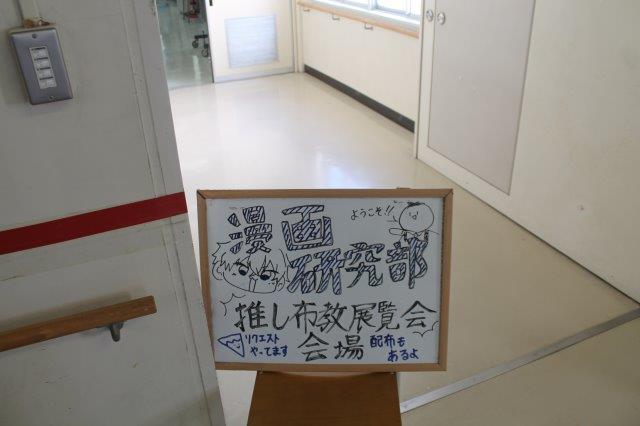 漫画
ようこそ!!
研究部
推し布教展覧会
会場
リクエスト
やってます
配布も
あるよ